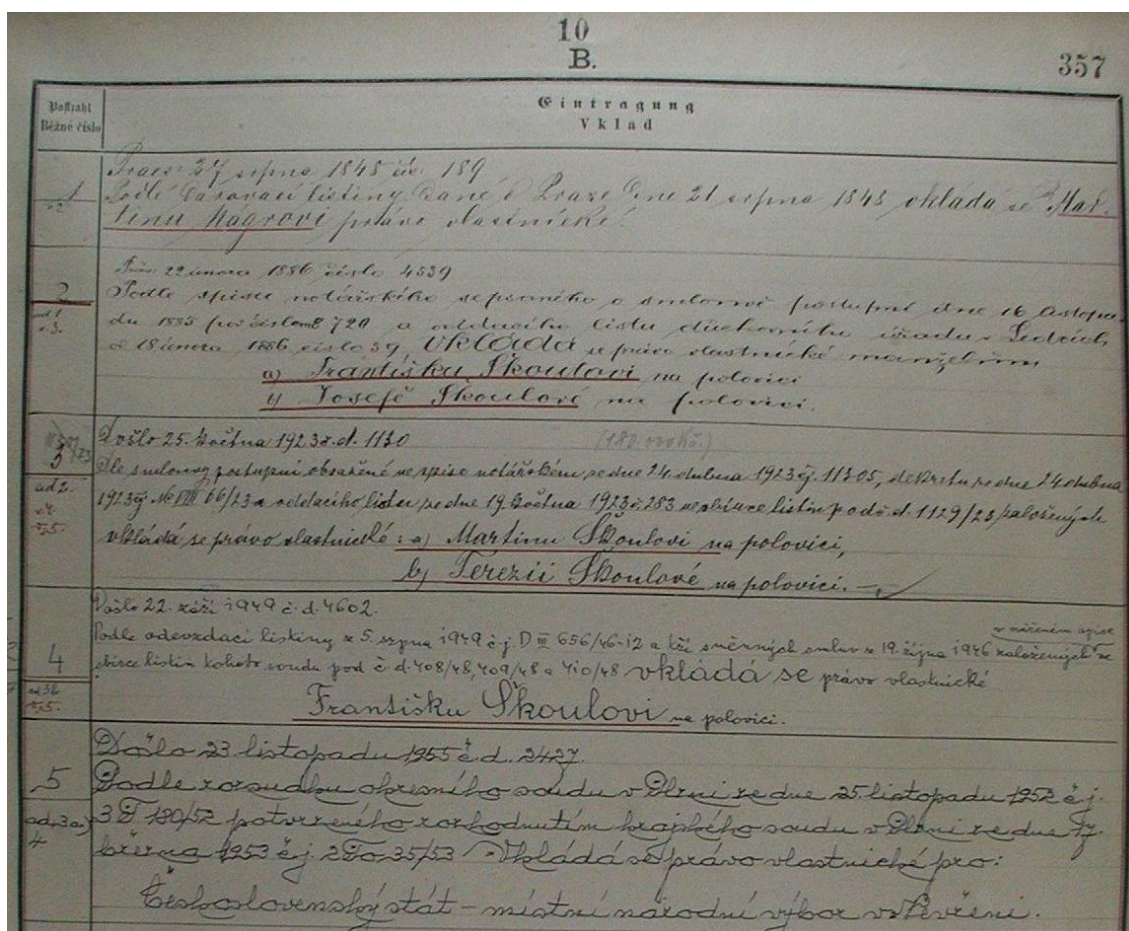 10
B.
357
Postzahl
Běžné číslo
Eintragung
Vklad
Praes 27 srpna 1848 čís. 189
1
Podlé darovací listiny dané v Praze dne 21 srpna 1848 vkládá se Mar-
tinu Magrovi právo vlastnické.
Präs. 22 února 1886 číslo 4539
2
Podle spisu notářského sepsaného o smlouvě postupní dne 16 listopa-
du 1885 pod číslem 8720 a oddacího listu duchovního úřadu v Ledcích
od 18 února 1886 číslo 39 vkládá se právo vlastnické manželům
a) Františku Škoulovi na polovici
b) Josefě Škoulové na polovici.
Došlo 25. května 1923 č. d. 1130
3
Dle smlouvy postupní obsažené ve spise notářském ze dne 24. dubna 1923 čj. 11305, dekretu ze dne 24 dubna
ad 2.
1923 čj. Nc VIII 66/23 a oddacího listu ze dne 19. května 1923 č. 283 ve sbírce listin pod č. d. 1129/23 založených
vkládá se právo vlastnické: a) Martinu Škoulovi na polovici,
b) Terezii Škoulové na polovici.
Došlo 22. září 1949 č. d. 4602.
4
Podle odevzdací listiny z 5. srpna 1949 č. j. D III 656/46-12 a tří směnných smluv z 19. října 1946 založených ve
sbírce listin tohoto soudu pod č. d. 408/48, 409/48 a 410/48 vkládá se právo vlastnické
Františku Škoulovi na polovici.
Došlo 23. listopadu 1955 č. d. 2427.
5
Podle rozsudku okresního soudu v Plzni ze dne 25. listopadu 1952 č. j.
ad 3 a)
3 T 180/52 potvrzeného rozhodnutím krajského soudu v Plzni ze dne 17.
4
března 1953 č. j. 2 To 35/53 vkládá se právo vlastnické pro:
Československý stát - místní národní výbor ve Levřeni.